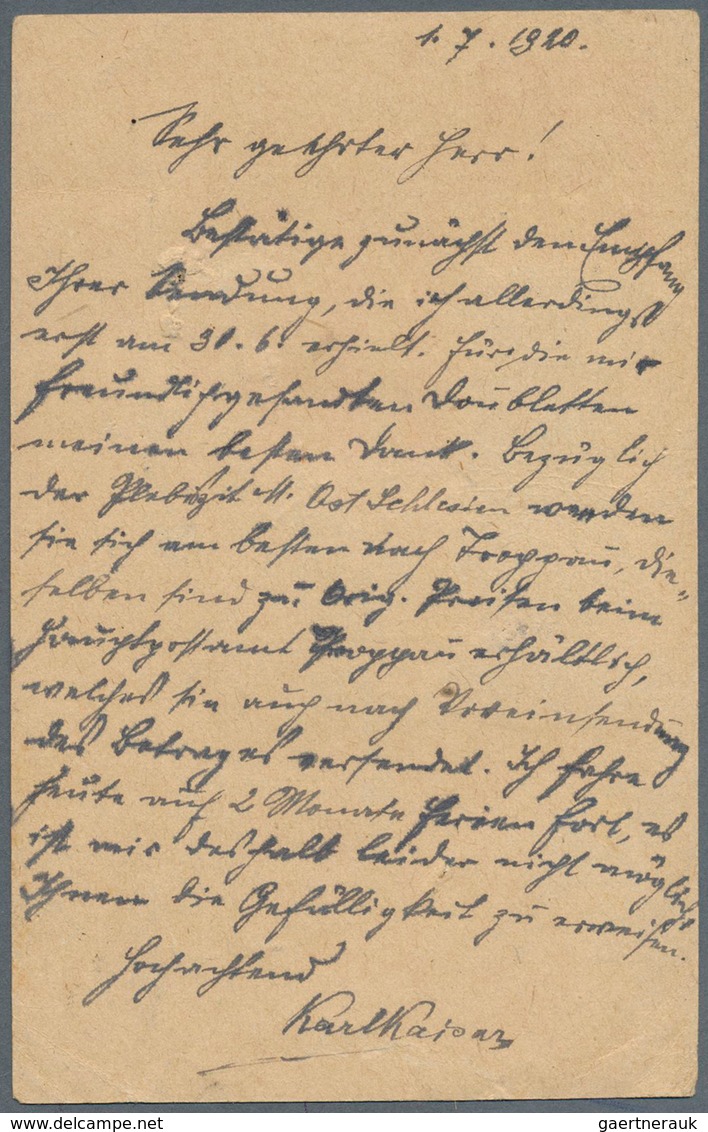 1. 7. 1920.
Sehr geehrter Herr!
Bestätige zunächst den Empfang
Ihrer Sendung, die ich allerdings
erst am 30. 6. erhielt. Für die mir
freundlichst gesandten Doubletten
meinen besten Dank. Bezüglich
der Plebizit M. Ost Schlesien wenden
sie sich am besten nach Troppau, die-
selben sind zu Orig. Preisen beim
Hauptpostamt Troppau erhältlich,
welches sie auch nach Voreinsendung
des Betrages versendet. Ich fahre
heute auf 2 Monate Ferien fort, es
ist mir deshalb leider nicht möglich
Ihnen die Gefälligkeit zu erweisen.
Hochachtend
Karl Kaiser
delcampe.net
gaertnerauk